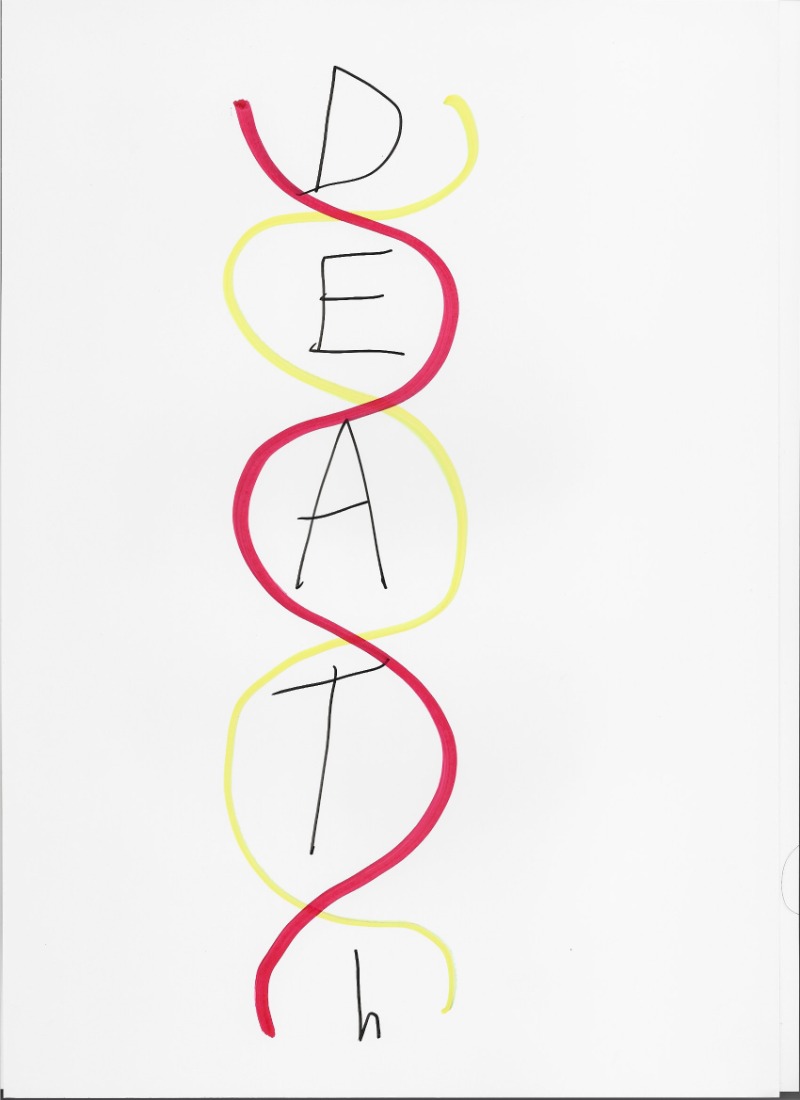 D
E
A
T
h